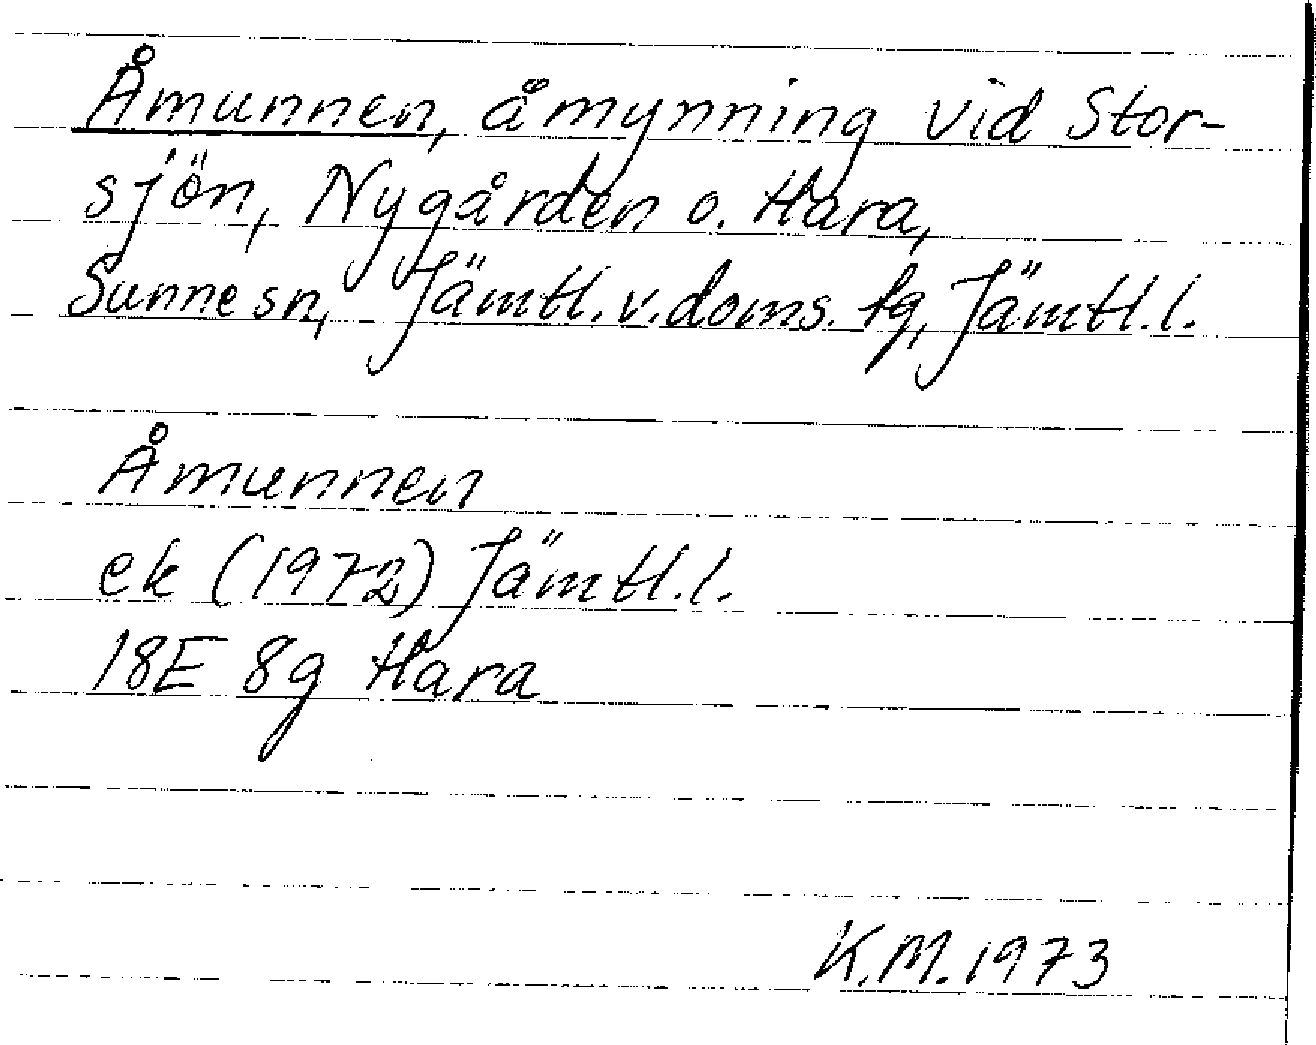 Åmunnen, åmynning vid Stor-
sjön, Nygården o. Hara,
Sunne sn, Jämtl. v. doms. fq, Jämtl. l.
Åmunnen
ek (1972) Jämtl. l.
18E 8g Hara
K.M. 1973